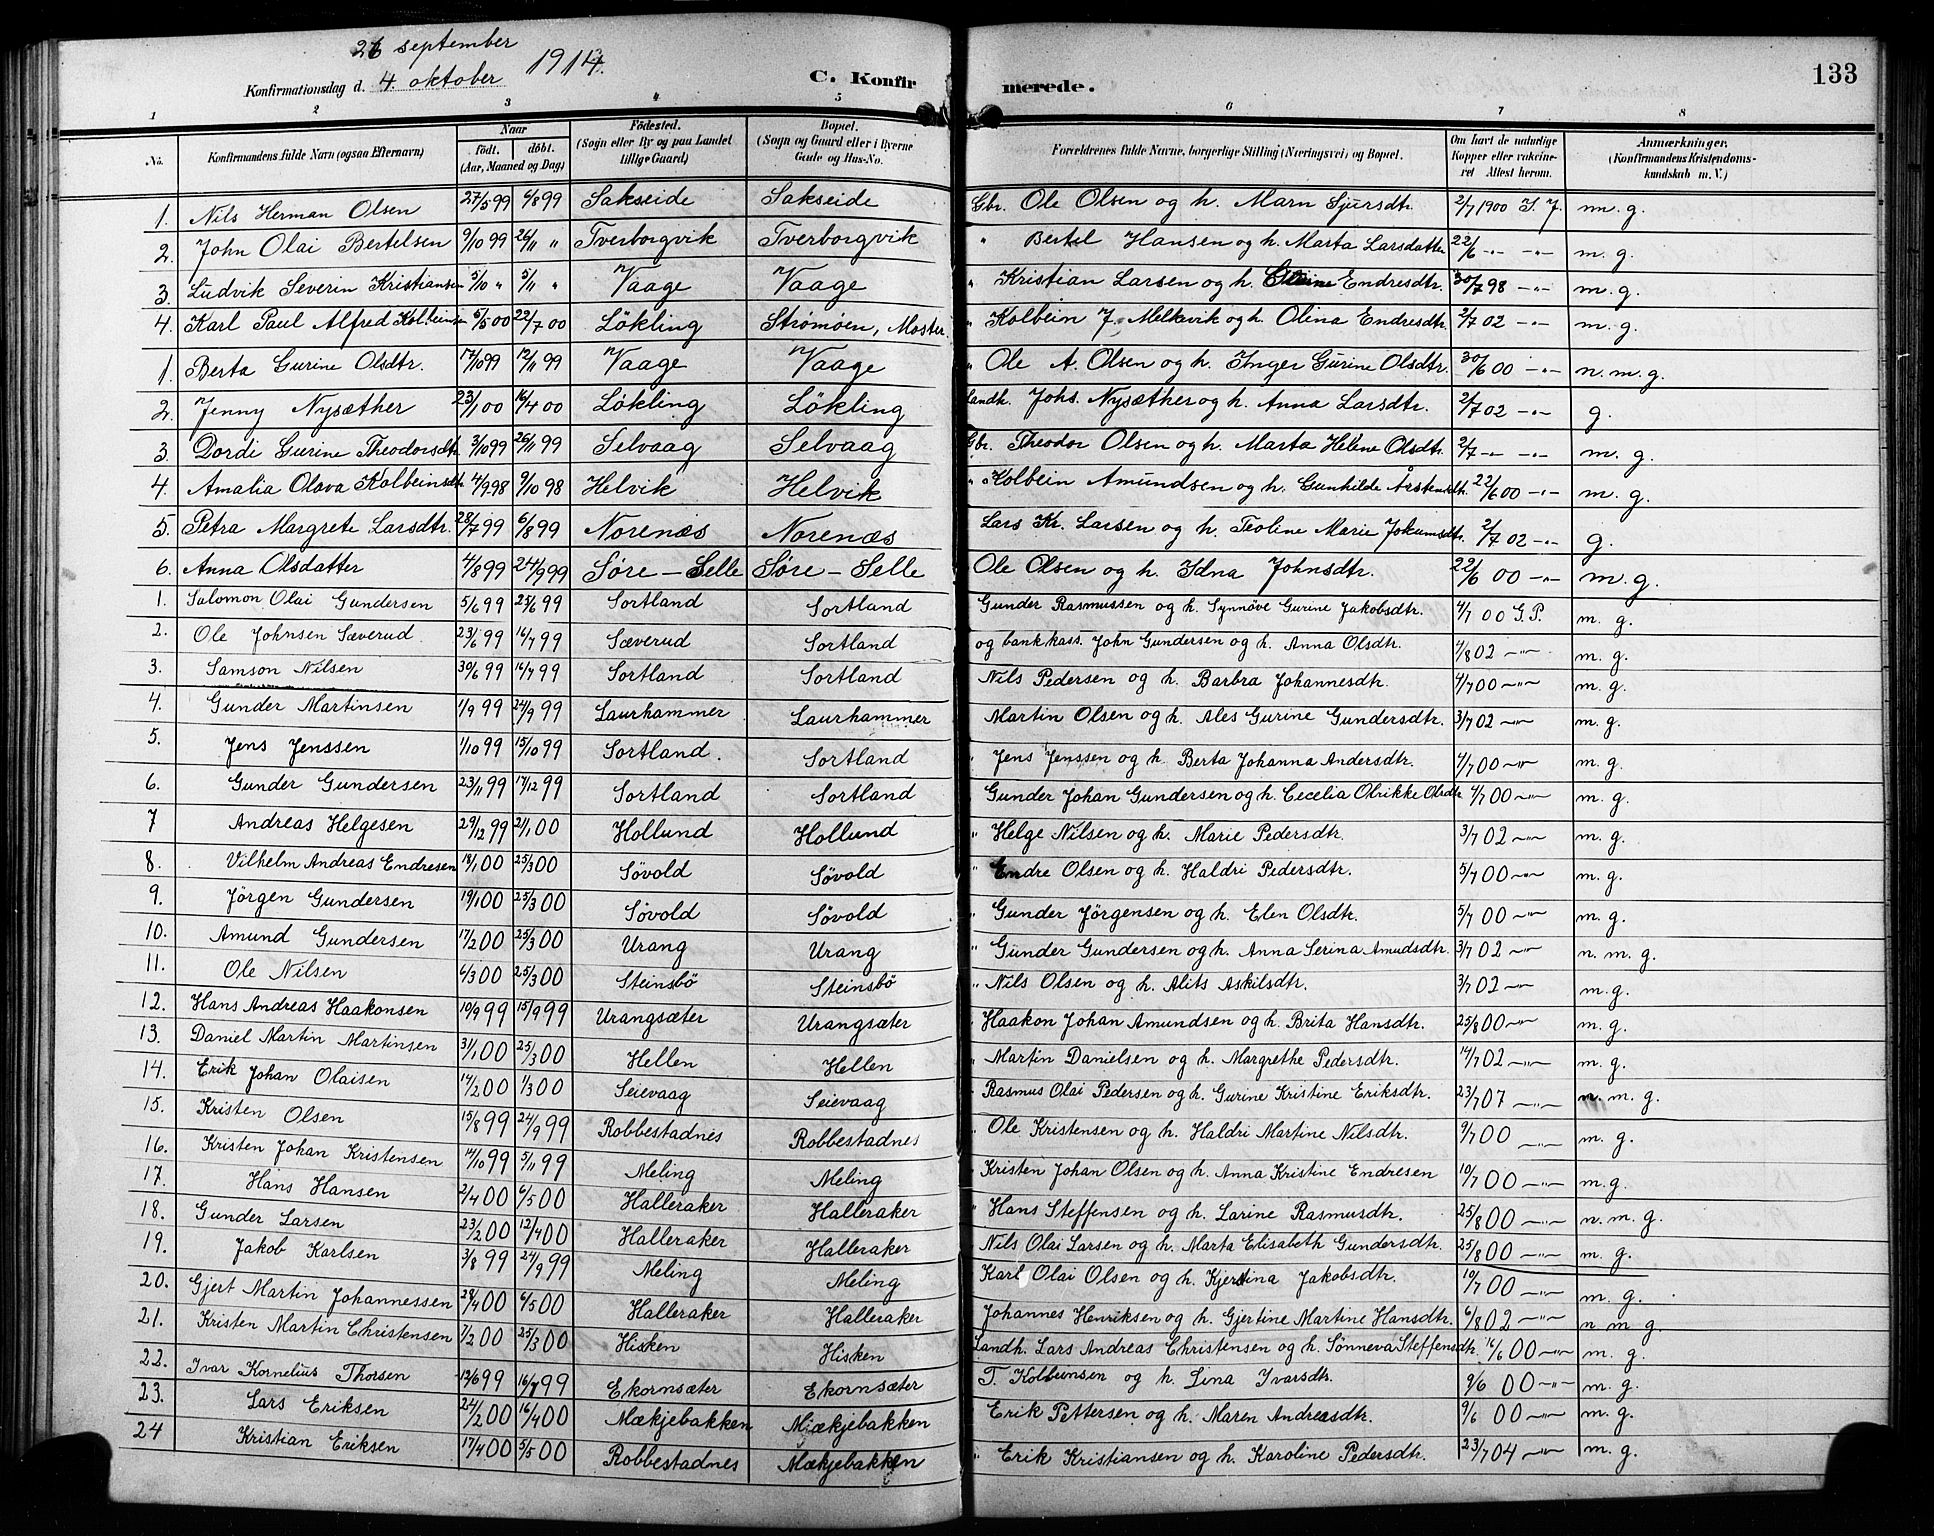 26 september
Konfirmationsdag d. 4. oktober 1914. C. Konfirmerede. 133
1 2 3 4 5 6 7 8
No. Konfirmandens fulde Navn (ogsaa Efternavn) Naar født. døbt. (Aar, Maaned og Dag) Födested. (Sogn eller By og paa Landet tillige Gaard) Bopæl. (Sogn og Gaard eller i Byerne Gade og Hus-No. Forældrenes fulde Navne, borgerlige Stilling (Næringsvei) og Bopæl. Om havt de naturlige Kopper eller vakcineret Attest herom. Anmærkninger. (Konfirmandens Kristendomskundskab m. V.)
1. Nils Herman Olsen 27/5 99 6/8 99 Sakseide Sakseide Gbr. Ole Olsen og h. Marn Sjursdtr. 2/7 1900 S. J. m. g.
2. John Olai Bertelsen 9/10 99 26/11 " Tverborgvik Tverborgvik " Bertel Hansen og h. Marta Larsdatter 22/6 -"- -"- m. g.
3. Ludvik Severin Kristiansen 5/10 " 5/11 " Vaage Vaage " Kristian Larsen og h. Endresdtr. 30/7 98 -"- m. g.
4. Karl Paul Alfred Kolbeinsen 5/5 00 22/7 00 Lökling Strømøen, Moster. " Kolbein J. Melkevik og h. Olina Endresdtr. 2/7 02 -"- m. g.
1. Berta Gurine Olsdtr. 17/10 99 12/11 99 Vaage Vaage " Ole A. Olsen og h. Inger Gurine Olsdtr. 30/6 00 -"- n. m. g.
2. Jenny Nysæther 23/1 00 16/4 00 Lökling Lökling Landh. Johs. Nysæther og h. Anna Larsdtr. 2/7 02 -"- g.
3. Dordi Gurine Theodorsdtr. 3/10 99 26/11 99 Selvaag Selvaag Gbr. Theodor Olsen og h. Marta Helene Olsdtr. 2/7 -"- -"- m. g.
4. Amalia Olava Kolbeinsdtr. 4/9 98 9/10 98 Helvik Helvik " Kolbein Amundsen og h. Gunhilde 22/6 00 -"- m. g.
5. Petra Margrete Larsdtr. 28/7 99 6/8 99 Norenæs Norenæs Lars Kr. Larsen og h. Teoline Marie Jokumsdtr 2/7 02 -"- g.
6. Anna Olsdatter 4/8 99 24/9 99 Söre - Selle Söre - Selle Ole Olsen og h. Idna Johnsdtr. 22/6 00 -"- m. g.
1. Salomon Olai Gundersen 5/6 99 25/6 99 Sortland Sortland Gunder Rasmussen og h. Synnöve Gurine Jakobsdtr. 4/7 00 G. P. m. g.
2. Ole Johnsen Sæverud. 23/6 99 16/7 99 Sæverud Sortland og bankkass. John Gundersen og h. Anna Olsdtr. 4/8 02 -"- m. g.
3. Samson Nilsen 30/6 99 16/7 99 Sortland Sortland Nils Pedersen og h. Barbra Johannesdtr. 4/7 00 -"- m. g.
4. Gunder Martinsen 1/9 99 24/9 99 Laurhammer Laurhammer Martin Olsen og h. Ales Gurine Gundersdtr. 3/7 02 -"- m. g.
5. Jens Jenssen 1/10 99 15/10 99 Sortland. Sortland " Jens Jenssen og h. Berta Johanna Andersdtr. 4/7 00 -"- m. g.
6. Gunder Gundersen 23/11 99 17/12 99 Sortland Sortland Gunder Johan Gundersen og h. Cecelia Olrikke Olsdtr 4/7 00 -"- m. g.
7 Andreas Helgesen 29/12 99 21/1 00 Hollund Hollund " Helge Nilsen og h. Marie Pedersdtr. 3/7 02 -"- m. g.
8. Vilhelm Andreas Endresen 18/1 00 25/3 00 Sövold Sövold " Endre Olsen og h. Haldri Pedersdtr. 5/7 00 -"- m. g.
9. Jörgen Gundersen 19/1 00 25/3 00 Sövold Sövold " Gunder Jörgensen og h. Elen Olsdtr. 5/7 00 -"- m. g.
10. Amund Gundersen 17/2 00 25/3 00 Urang Urang " Gunder Gundersen og h. Anna Serina Amudsdtr. 3/7 02 -"- n. m. g.
11. Ole Nilsen 6/3 00 25/3 00 Steinsbö Steinsbö " Nils Olsen og h. Alits Askilsdtr. 3/7 02 -"- m. g.
12. Hans Andreas Haakonsen 10/9 99 15/9 99 Urangsæter Urangsæter " Haakon Johan Amundsen og h. Brita Hansdtr. 25/8 00 -"- m. g.
13. Daniel Martin Martinsen 31/1 00 25/3 00 Hellen Hellen " Martin Danielsen og h. Margrethe Pedersdtr. 14/7 02 -"- m. g.
14. Erik Johan Olaisen 14/2 00 1/3 00 Seievaag Seievaag " Rasmus Olai Pedersen og h. Gurine Kristine Eriksdtr. 23/7 07 -"- n. m. g.
15. Kristen Olsen 15/8 99 24/9 99 Robbestadnes Robbestadnes " Ole Kristensen og h. Haldri Martine Nilsdtr. 9/7 00 -"- m. g.
16. Kristen Johan Kristensen 14/10 99 5/11 99 Meling Meling " Kristen Johan Olsen og h. Anna Kristine Endresen 10/7 00 -"- m. g.
17. Hans Hansen 2/4 00 6/5 00 Halleraker Halleraker " Hans Steffensen og h. Larine Rasmusdtr. 25/8 00 -"- n. m. g.
18. Gunder Larsen 23/2 00 12/4 00 Halleraker Halleraker Nils Olai Larsen og h. Marta Elisabeth Gundersdtr. 25/8 00 -"- m. g.
19. Jakob Karlsen 3/8 99 24/9 99 Meling Meling Karl Olai Olsen og h. Kjerstina Jakobsdtr. 10/7 00 -"- m. g.
20. Gjert Martin Johannessen 28/4 00 6/5 00 Halleraker Halleraker Johannes Henriksen og h. Gjertine Martine Hansdtr. 6/8 02 -"- n m g.
21. Kristen Martin Christensen 7/2 00 25/3 00 Hisken Hisken Landh. Lars Andreas Christensen og h. Sönneva Steffensdtr. 16/6 00 -"- m. g.
22. Ivar Kornelius Thorsen 12/6 99 16/7 99 Ekornsæter Ekornsæter T. Kolbeinsen og h. Lina Ivarsdtr. 9/6 00 -"- m. g.
23. Lars Eriksen 24/2 00 16/4 00 Mækjebakken Mækjebakken Erik Pettersen og h. Maren Andreasdtr. 9/6 00 -"- m. g.
24 Kristian Eriksen 17/4 00 5/5 00 Robbestadnes Mækjebakken " Erik Kristiansen og h. Karoline Pedersdtr. 23/7 04 -"- m. g.